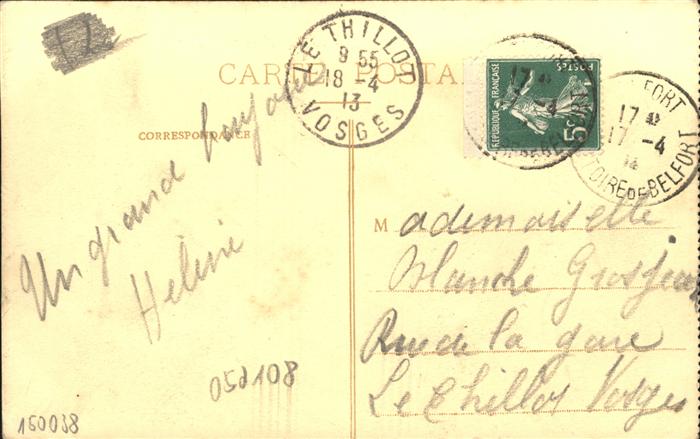 CARTE POSTALE
CORRESPONDANCE
LE THILLOT
9 55
18 -4
13
VOSGES
POSTES
REPUBLIQUE FRANÇAISE
5c
17
BELFORT
17
17 -4
TOIRE DE BELFORT
Un grand bonjour
Hélène
Mademoiselle
Blanche Grosjean
Rue de la gare
Le Thillot Vosges
052108
150038